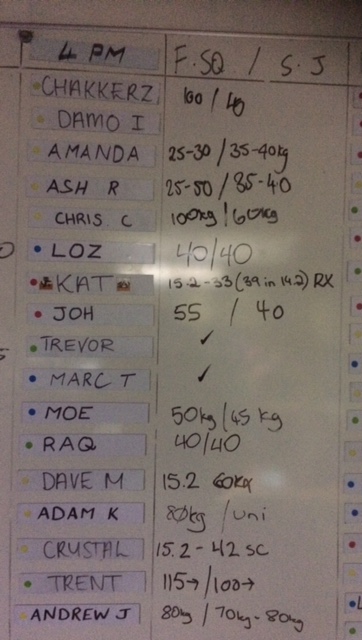 4 PM F.SQ / S.J
CHAKKERZ 100 / 40
DAMO I
AMANDA 25-30 / 35-40kg
ASH R 25-50 / 35-40
CHRIS C 100kg / 60kg
LOZ 40/40
KAT 15.2 - 33 (39 in 14.2) RX
JOH 55 / 40
TREVOR ✓
MARC T ✓
MOE 50kg / 45 kg
RAQ 40/40
DAVE M 15.2 60kg
ADAM K 80kg / uni
CRYSTAL 15.2 - 42 SC
TRENT 115→ / 100→
ANDREW J 80kg / 70kg - 80kg